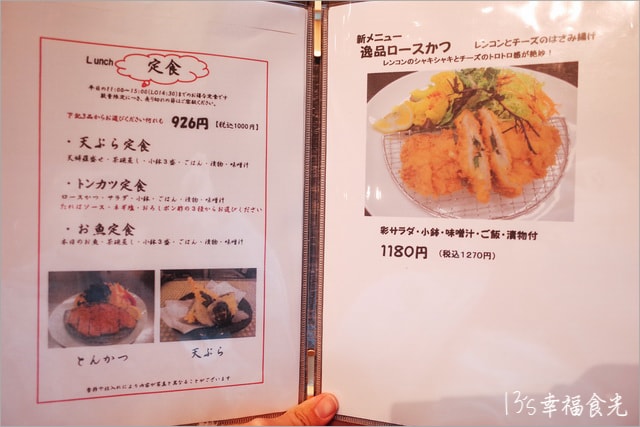 Lunch 定食
平日の11:00〜15:00(LO14:30)までのお得な定食です
数量限定につき、売り切れの節はご容赦ください。
下記3品からお選びください何れも 926円【税込1000円】
・天ぷら定食
天婦羅盛せ・茶碗蒸し・小鉢3盛・ごはん・漬物・味噌汁
・トンカツ定食
ロースかつ・サラダ・小鉢・ごはん・漬物・味噌汁
たれはソース・ネギ塩・おろしポン酢の3種からお選びください
・お魚定食
本日のお魚・茶碗蒸し・小鉢3盛・ごはん・漬物・味噌汁
とんかつ
天ぷら
季節や仕入れにより内容が写真と異なることがございます
新メニュー
逸品ロースかつ レンコンとチーズのはさみ揚げ
レンコンのシャキシャキとチーズのトロトロ感が絶妙!
彩サラダ・小鉢・味噌汁・ご飯・漬物付
1180円 (税込1270円)
13's幸福食光